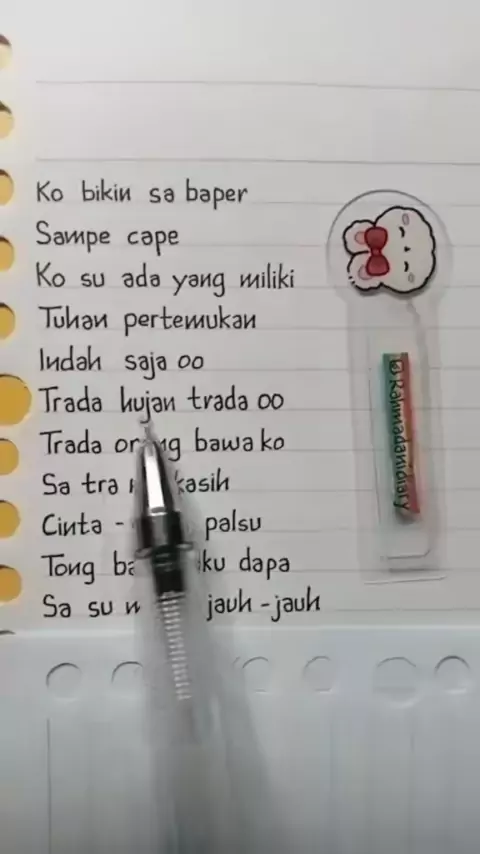 Ko bikin sa baper
Sampe cape
Ko su ada yang miliki
Tuhan pertemukan
Indah saja oo
Trada hujan trada oo
Trada orang bawa ko
Sa tra kasih
Cinta - palsu
Tong ku dapa
Sa su jauh - jauh
@Rahmadanidiary